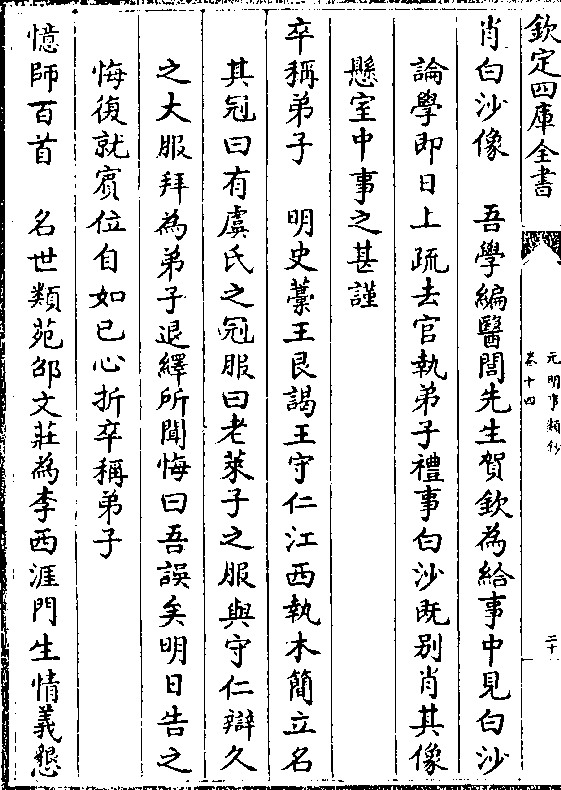 欽定四庫全書
元明事類鈔
卷十四
二十
肖白沙像　吾學編醫閭先生賀欽為給事中見白沙
論學即日上疏去官執弟子禮事白沙既别肖其像
懸室中事之甚謹
卒稱弟子　明史藁王艮謁王守仁江西執木簡立名
其冠曰有虞氏之冠服曰老萊子之服與守仁辯久
之大服拜為弟子退繹所聞悔曰吾誤矣明日告之
悔復就賓位自如已心折卒稱弟子
憶師百首　名世類苑邵文莊為李西涯門生情義懇